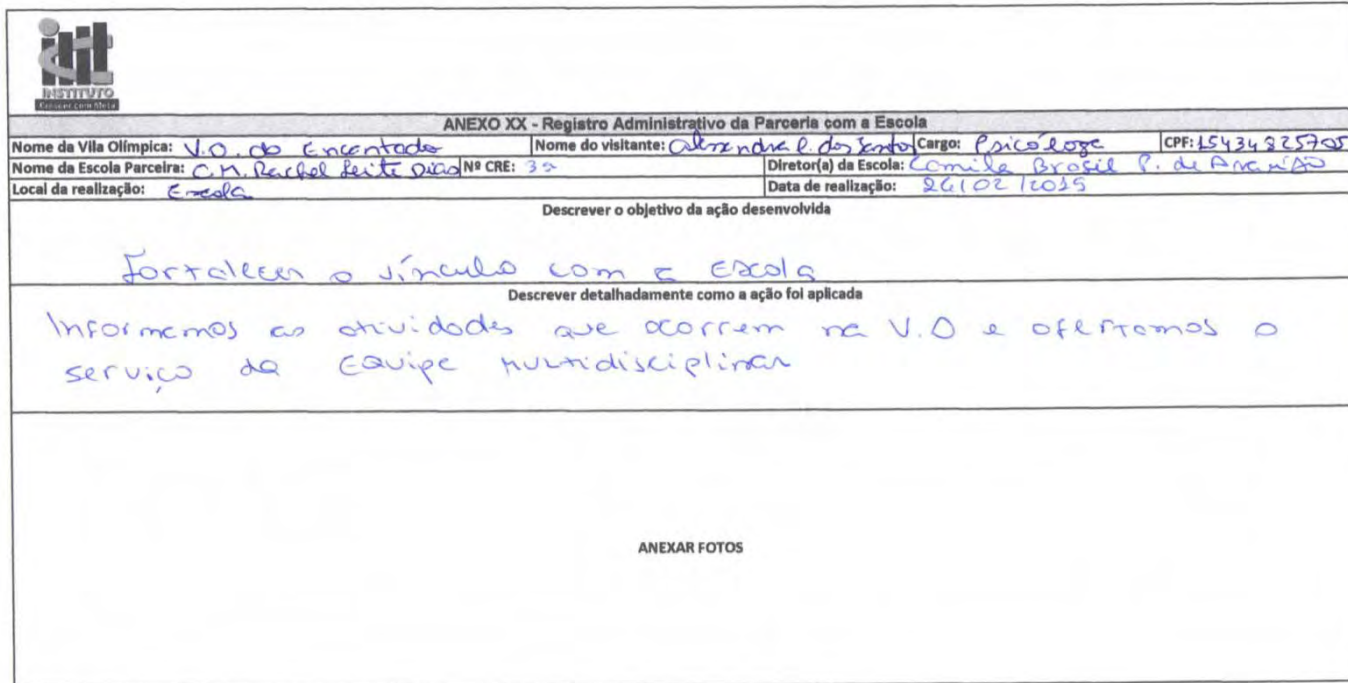 INSTITUTO
Crescer com Meta
ANEXO XX - Registro Administrativo da Parceria com a Escola
Nome da Vila Olímpica: V.O. do Encantado Nome do visitante: Alexandra P. dos Santos Cargo: Psicóloga CPF: 15434825705
Nome da Escola Parceira: C.M. Rachel Leite Dias Nº CRE: 3ª Diretor(a) da Escola: Camila Brasil P. de Araújo
Local da realização: Escola Data de realização: 26/02/2019
Descrever o objetivo da ação desenvolvida
Fortalecer o vínculo com a Escola
Descrever detalhadamente como a ação foi aplicada
Informamos as atividades que ocorrem na V.O e ofertamos o
serviço da Equipe Multidisciplinar
ANEXAR FOTOS